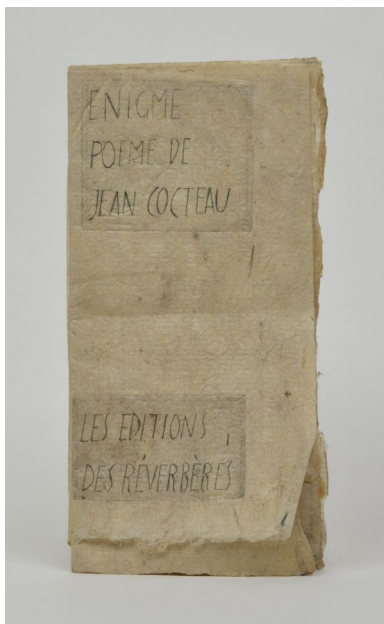 ENIGME
POEME DE
JEAN COCTEAU
LES EDITIONS
DES RÉVERBÈRES